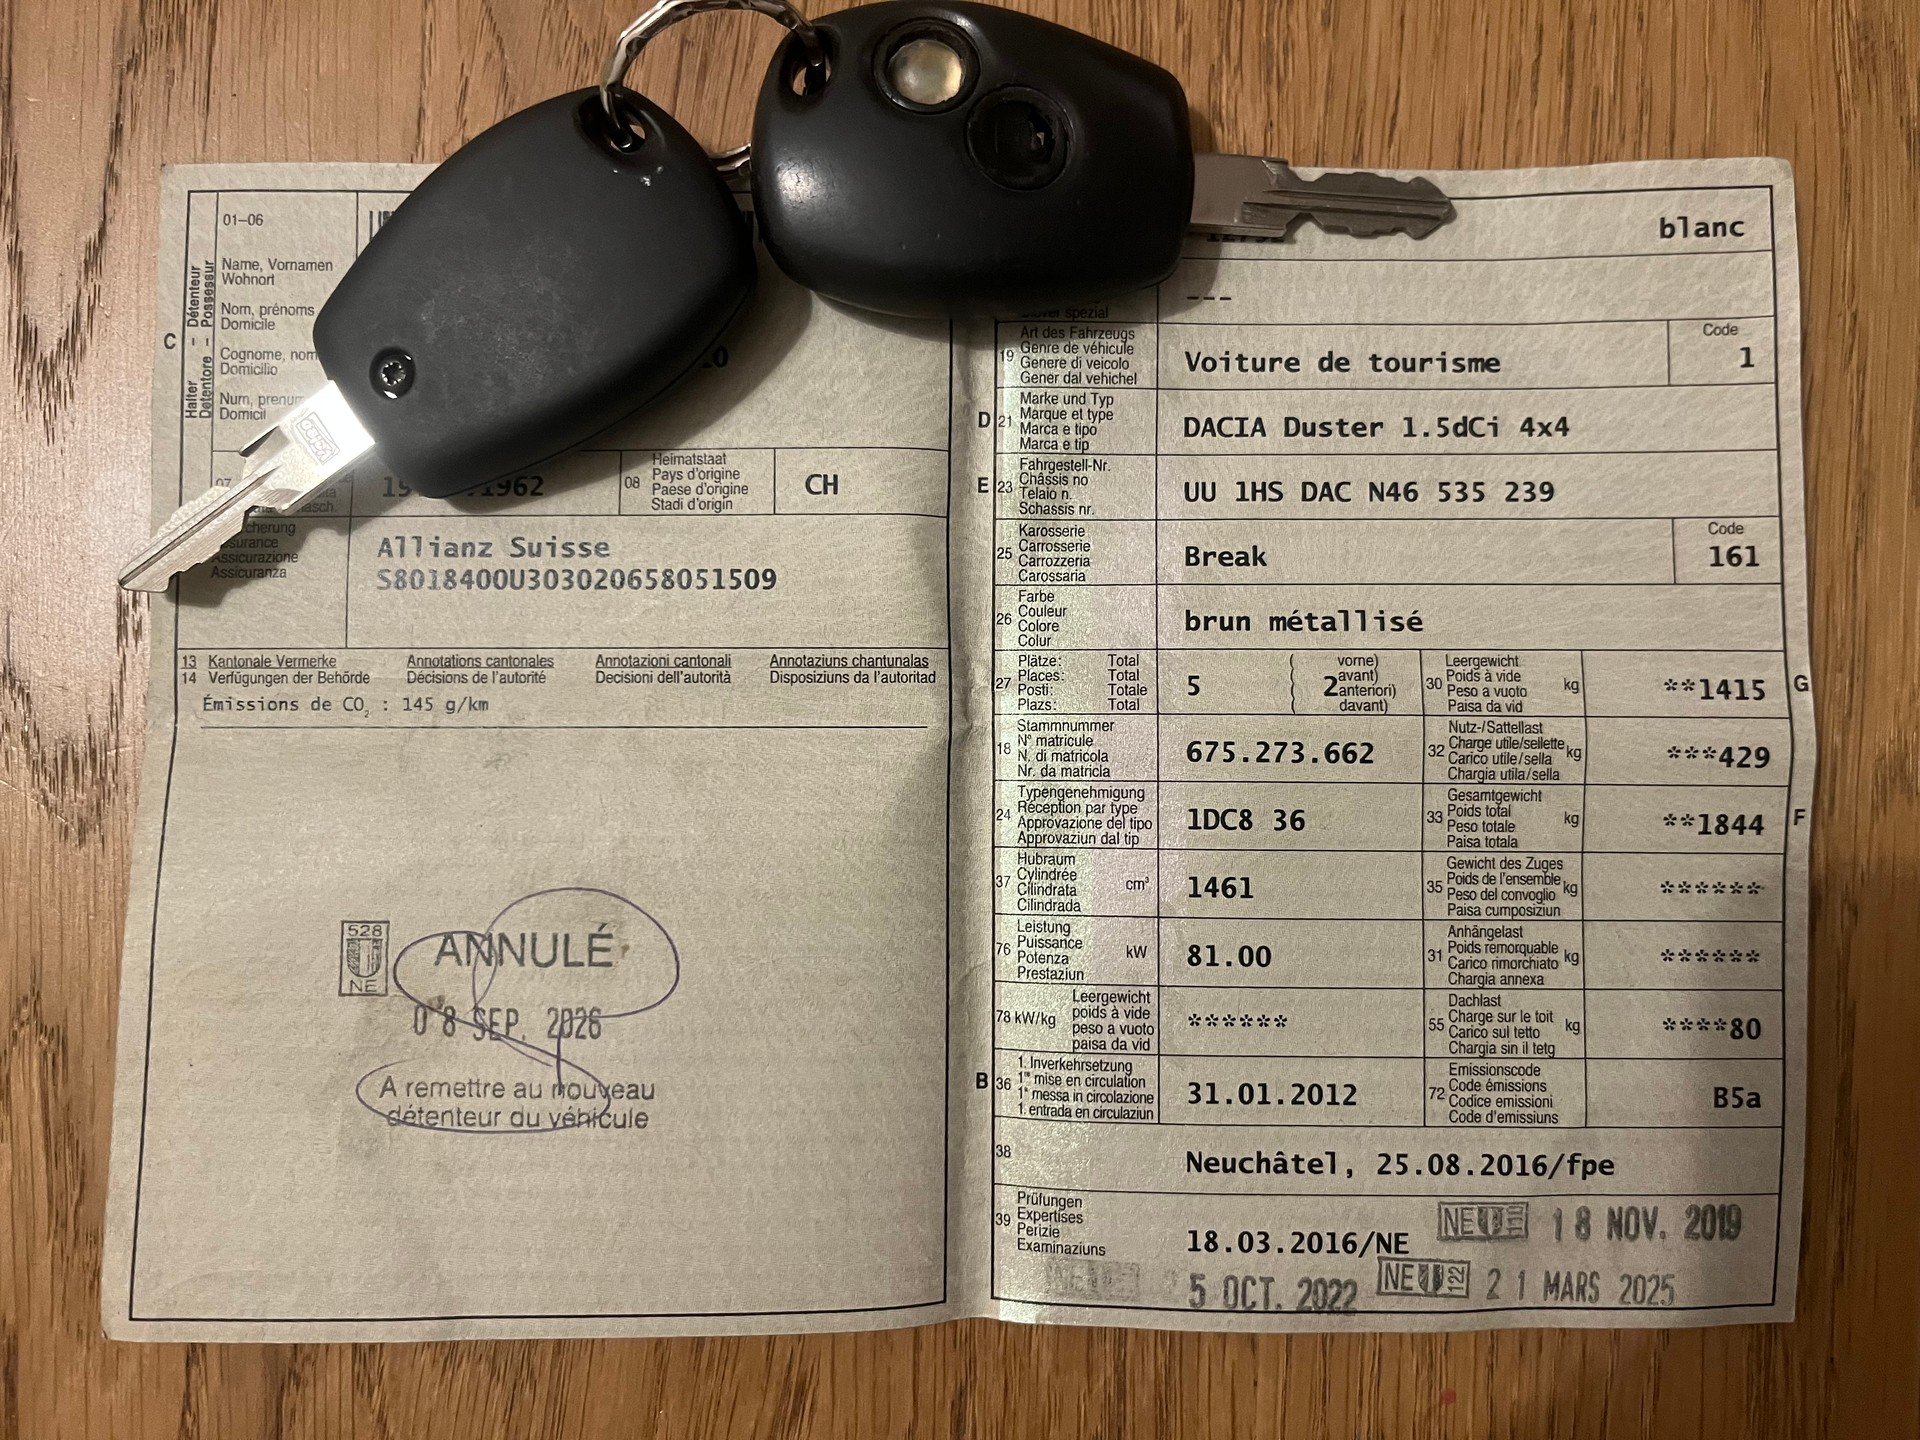 01–06
C
Halter - Détenteur
Detentore - Possessur
Name, Vornamen
Wohnort
Nom, prénoms
Domicile
Cognome,
Domicilio
Num,
Domicil
07
1962
08
Heimatstaat
Pays d'origine
Paese d'origine
Stadi d'origin
CH
Assicurazione
Assicuranza
Allianz Suisse
S8018400U303020658051509
13 Kantonale Vermerke Annotations cantonales Annotazioni cantonali Annotaziuns chantunalas
14 Verfügungen der Behörde Décisions de l'autorité Decisioni dell'autorità Disposiziuns da l'autoritad
Émissions de CO2 : 145 g/km
528
NE
ANNULÉ
08 SEP. 2026
A remettre au nouveau
détenteur du véhicule
blanc
---
spezial
19
Art des Fahrzeugs
Genre de véhicule
Genere di veicolo
Gener dal vehichel
Voiture de tourisme
Code
1
D
21
Marke und Typ
Marque et type
Marca e tipo
Marca e tip
DACIA Duster 1.5dCi 4x4
E
23
Fahrgestell-Nr.
Châssis no
Telaio n.
Schassis nr.
UU 1HS DAC N46 535 239
25
Karosserie
Carrosserie
Carrozzeria
Carossaria
Break
Code
161
26
Farbe
Couleur
Colore
Colur
brun métallisé
27
Plätze: Total
Places: Total
Posti: Totale
Plazs: Total
5
( vorne)
( avant)
2
( anteriori)
( davant)
30
Leergewicht
Poids à vide
Peso a vuoto
Paisa da vid
kg
**1415
G
18
Stammnummer
N° matricule
N. di matricola
Nr. da matricla
675.273.662
32
Nutz-/Sattellast
Charge utile/sellette
Carico utile/sella
Chargia utila/sella
kg
***429
24
Typengenehmigung
Réception par type
Approvazione del tipo
Approvaziun dal tip
1DC8 36
33
Gesamtgewicht
Poids total
Peso totale
Paisa totala
kg
**1844
F
37
Hubraum
Cylindrée
Cilindrata
Cilindrada
cm³
1461
35
Gewicht des Zuges
Poids de l'ensemble
Peso del convoglio
Paisa cumposiziun
kg
******
76
Leistung
Puissance
Potenza
Prestaziun
kW
81.00
31
Anhängelast
Poids remorquable
Carico rimorchiato
Chargia annexa
kg
******
78 kW/kg
Leergewicht
poids à vide
peso a vuoto
paisa da vid
******
55
Dachlast
Charge sur le toit
Carico sul tetto
Chargia sin il tetg
kg
****80
B
36
1. Inverkehrsetzung
1re mise en circulation
1a messa in circolazione
1. entrada en circulaziun
31.01.2012
72
Emissionscode
Code émissions
Codice emissioni
Code d'emissiuns
B5a
38
Neuchâtel, 25.08.2016/fpe
39
Prüfungen
Expertises
Perizie
Examinaziuns
18.03.2016/NE
NE 18 NOV. 2019
5 OCT. 2022
NE 122 21 MARS 2025